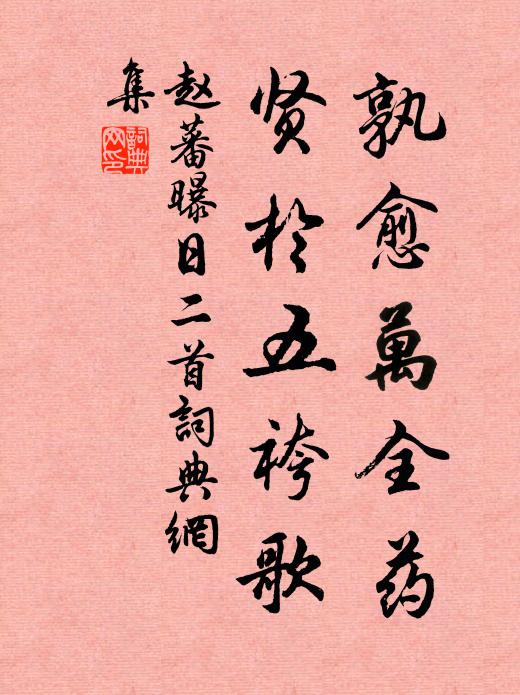 孰愈萬全药
贤於五袴歌
赵蕃曝日二首詞典網
集
詞典网印